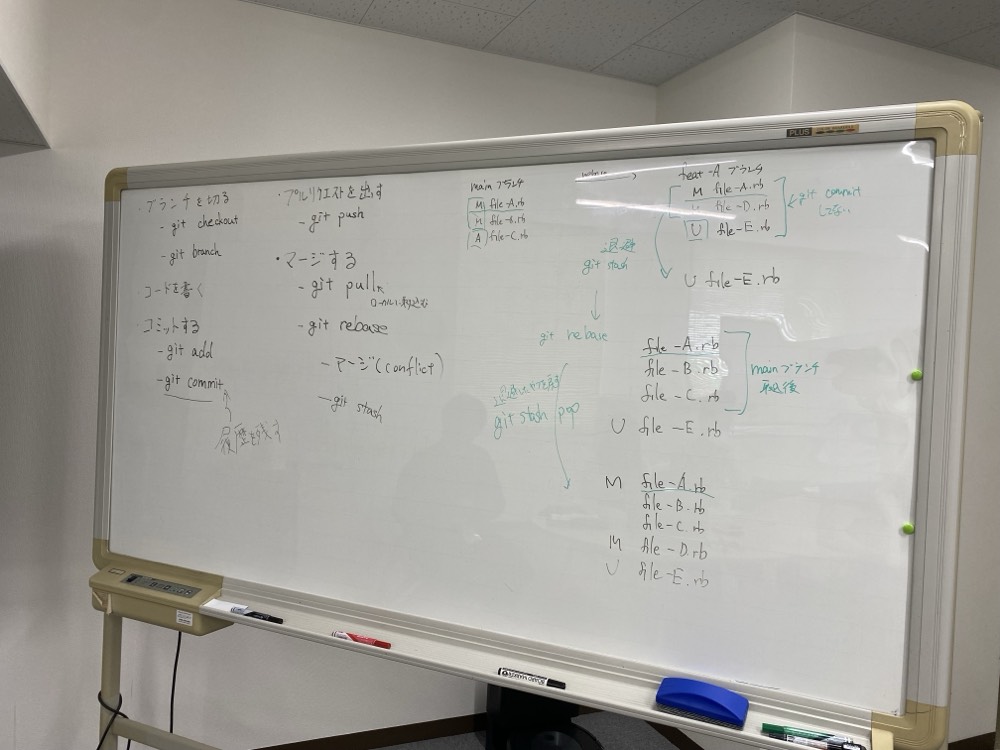 ・ブランチを切る
- git checkout
- git branch
・コードを書く
・コミットする
- git add
- git commit
履歴を残す
・プルリクエストを出す
- git push
・マージする
- git pull
ローカルに取込む
- git rebase
- マージ(conflict)
- git stash
main ブランチ
M file-A.rb
M file-B.rb
A file-C.rb
feat-A ブランチ
M file-A.rb
M file-D.rb
U file-E.rb
git commit
してない
退避
git stash
U file-E.rb
git rebase
file-A.rb
file-B.rb
file-C.rb
main ブランチ
取込後
U file-E.rb
git stash pop
M file-A.rb
file-B.rb
file-C.rb
M file-D.rb
U file-E.rb
PLUS